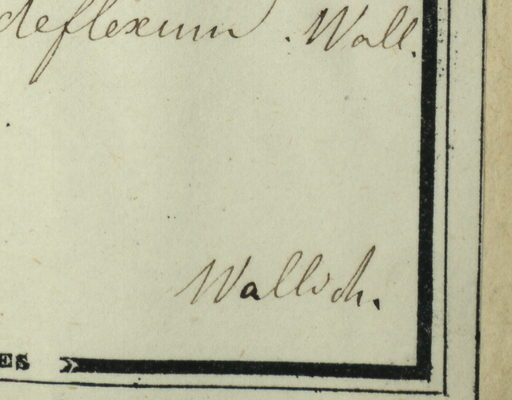 deflexum. Wall.
Wallich.
ES